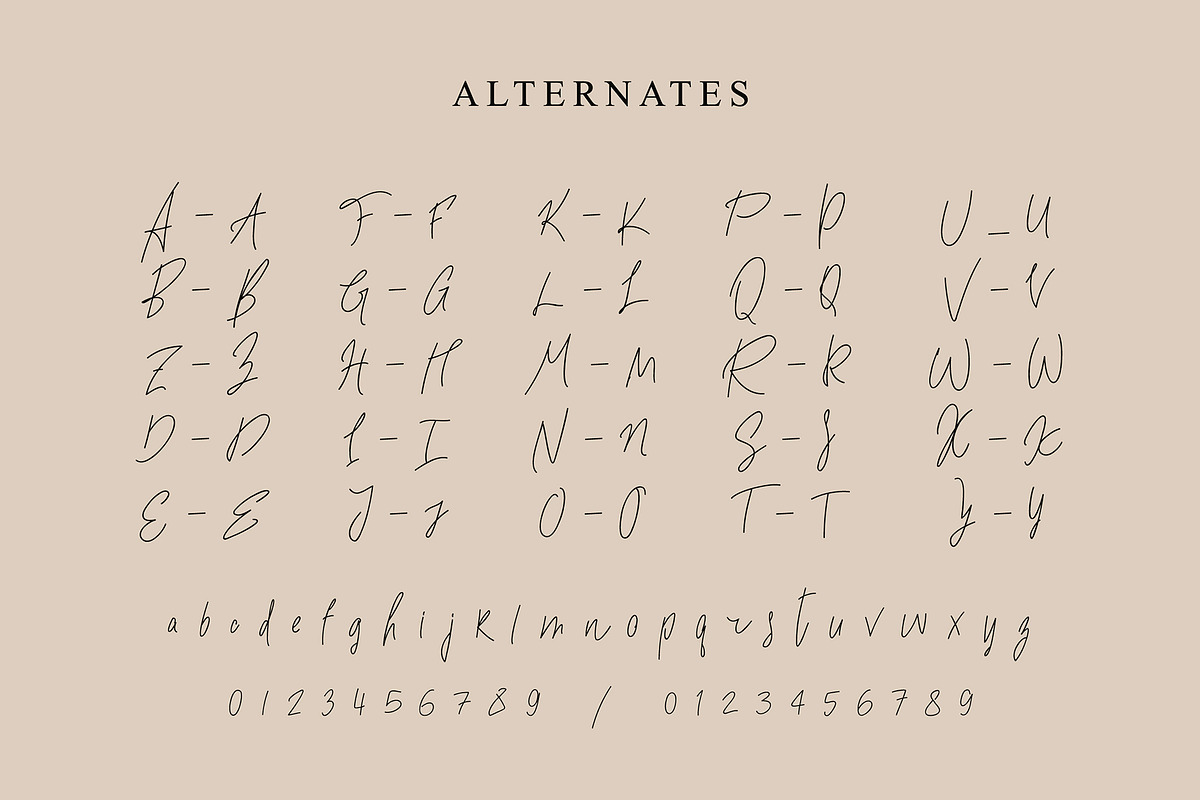 ALTERNATES
A - A F - F K - K P - P U _ U
B - B G - G L - L Q - Q V - V
Z - Z H - H M - M R - R W - W
D - D I - I N - N S - S X - X
E - E J - J O - O T - T Y - Y
a b c d e f g h i j k l m n o p q r s t u v w x y z
0 1 2 3 4 5 6 7 8 9 / 0 1 2 3 4 5 6 7 8 9